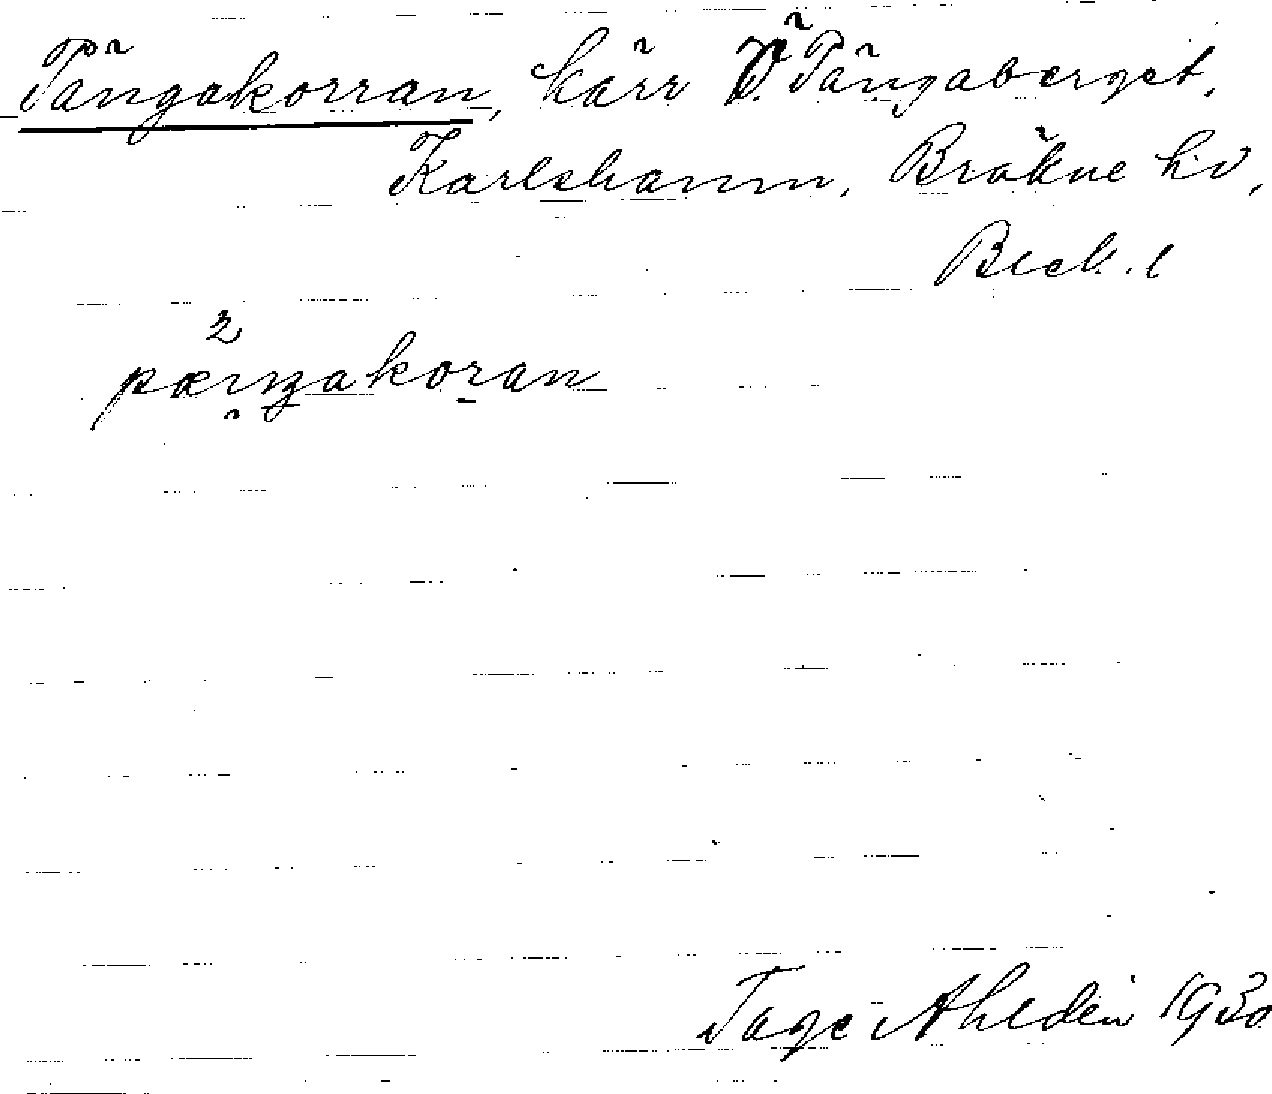 Pängakorran, kärr Pängaberget.
Karlshamn, Bräkne hd,
Blek. l
2
pæŋakoran
Tage Ahldén 1930